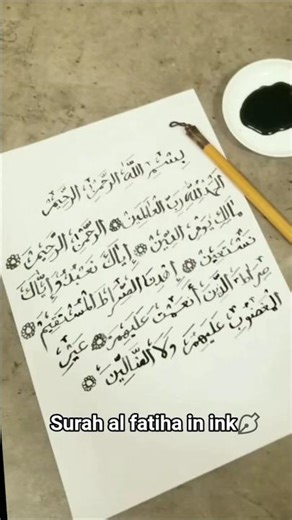 بِسْمِ اللَّهِ الرَّحْمَٰنِ الرَّحِيمِ
الْحَمْدُ لِلَّهِ رَبِّ الْعَالَمِينَ ۞ الرَّحْمَٰنِ الرَّحِيمِ ۞
مَالِكِ يَوْمِ الدِّينِ ۞ إِيَّاكَ نَعْبُدُ وَإِيَّاكَ
نَسْتَعِينُ ۞ اهْدِنَا الصِّرَاطَ الْمُسْتَقِيمَ ۞
صِرَاطَ الَّذِينَ أَنْعَمْتَ عَلَيْهِمْ ۞ غَيْرِ
الْمَغْضُوبِ عَلَيْهِمْ وَلَا الضَّالِّينَ ۞
Surah al fatiha in ink